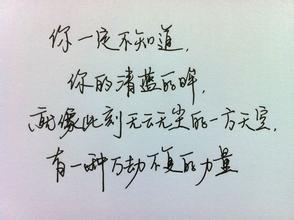 你一定不知道,
你的清蓝的眸,
就像此刻无云无尘的一方天空,
有一种万劫不复的力量